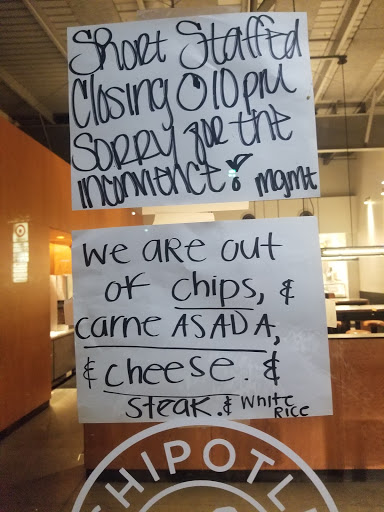 Short Staffed
Closing @ 10pm
Sorry for the
inconvience!
mgmt
we are out
of chips, &
carne ASADA,
& cheese. &
steak. & White
Rice
CHIPOTL